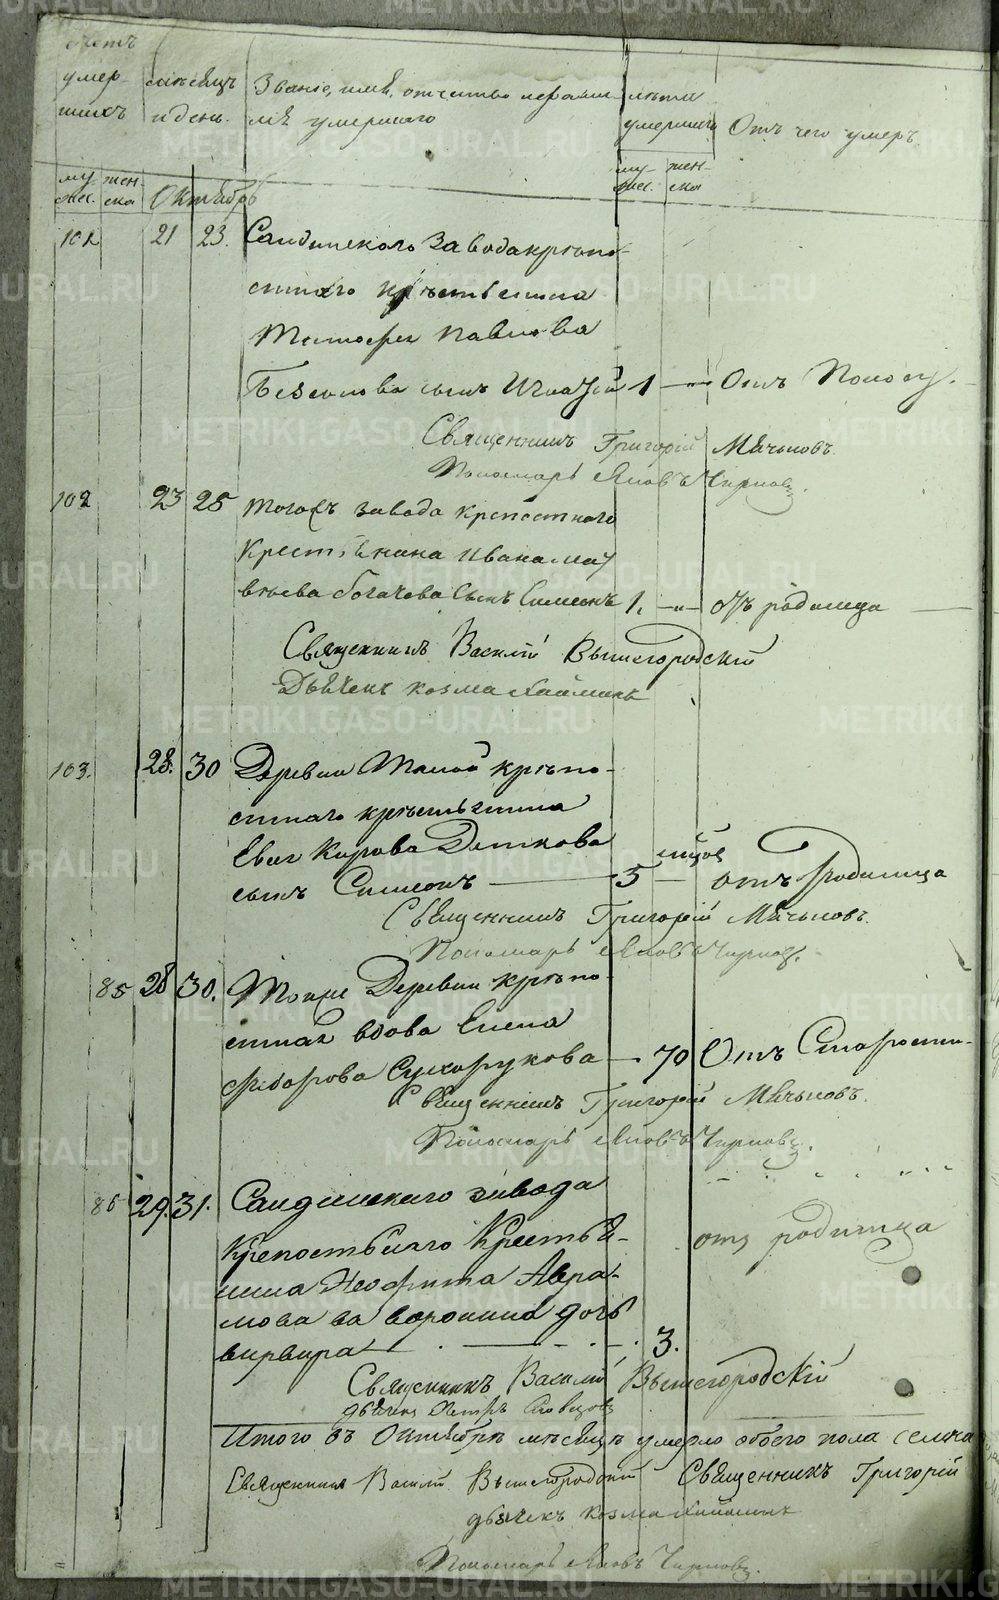 счетъ умер- шихъ
мѣсяцъ и день.
Званіе, имя, отчество и фамилія умершаго
лѣта умершихъ
Отъ чего умеръ
му- жес. жен- ска Октябрь му- жес. жен- ска
101 21 23. Саидинскаго Заводакрѣпо-
стнаго крѣстьянина
Тимофея Павлова
сынъ Игнатій 1 — Отъ Поносу.
Священникъ Григорій Мячьковъ.
Пономарь Яковъ Чирковъ.
102 23 25 тогожъ завода крепостнаго
Крестьянина Ивана Мат
вѣева богачева Сынъ Симеонъ 1. —"— отъ родимца
Священникъ Василій Вышегородскій
Дьячекъ козма
103. 28. 30 Деревни Талой крѣпо-
стнаго крѣстьянина
Карпова Деткова
мѣсяцов
сынъ Симеонъ — 5 — отъ Родимца
Священникъ Григорій Мячьковъ.
Пономарь Яковъ Чирковъ.
85 28 30. Тойже Деревни крѣпо-
стная вдова Елена
Федорова Сухорукова — 70 Отъ Старости-
Священникъ Григорій Мячьковъ.
Пономарь Яковъ Чирковъ.
86 29. 31. Саидинскаго завода
Крепостнаго Крестья-
нина Неофита Авра- отъ родимца
мова воронина дочь
варвара — 3.
Священникъ Василій Вышегородскій
дьячекъ Петръ Словцовъ
Итого въ Октябрѣ мѣсяцѣ умерло обоего пола семна
Священникъ Василій Вышегородскій Священникъ Григорій
дьячекъ козма
Пономарь Яковъ Чирковъ.
METRIKI.GASO-URAL.RU